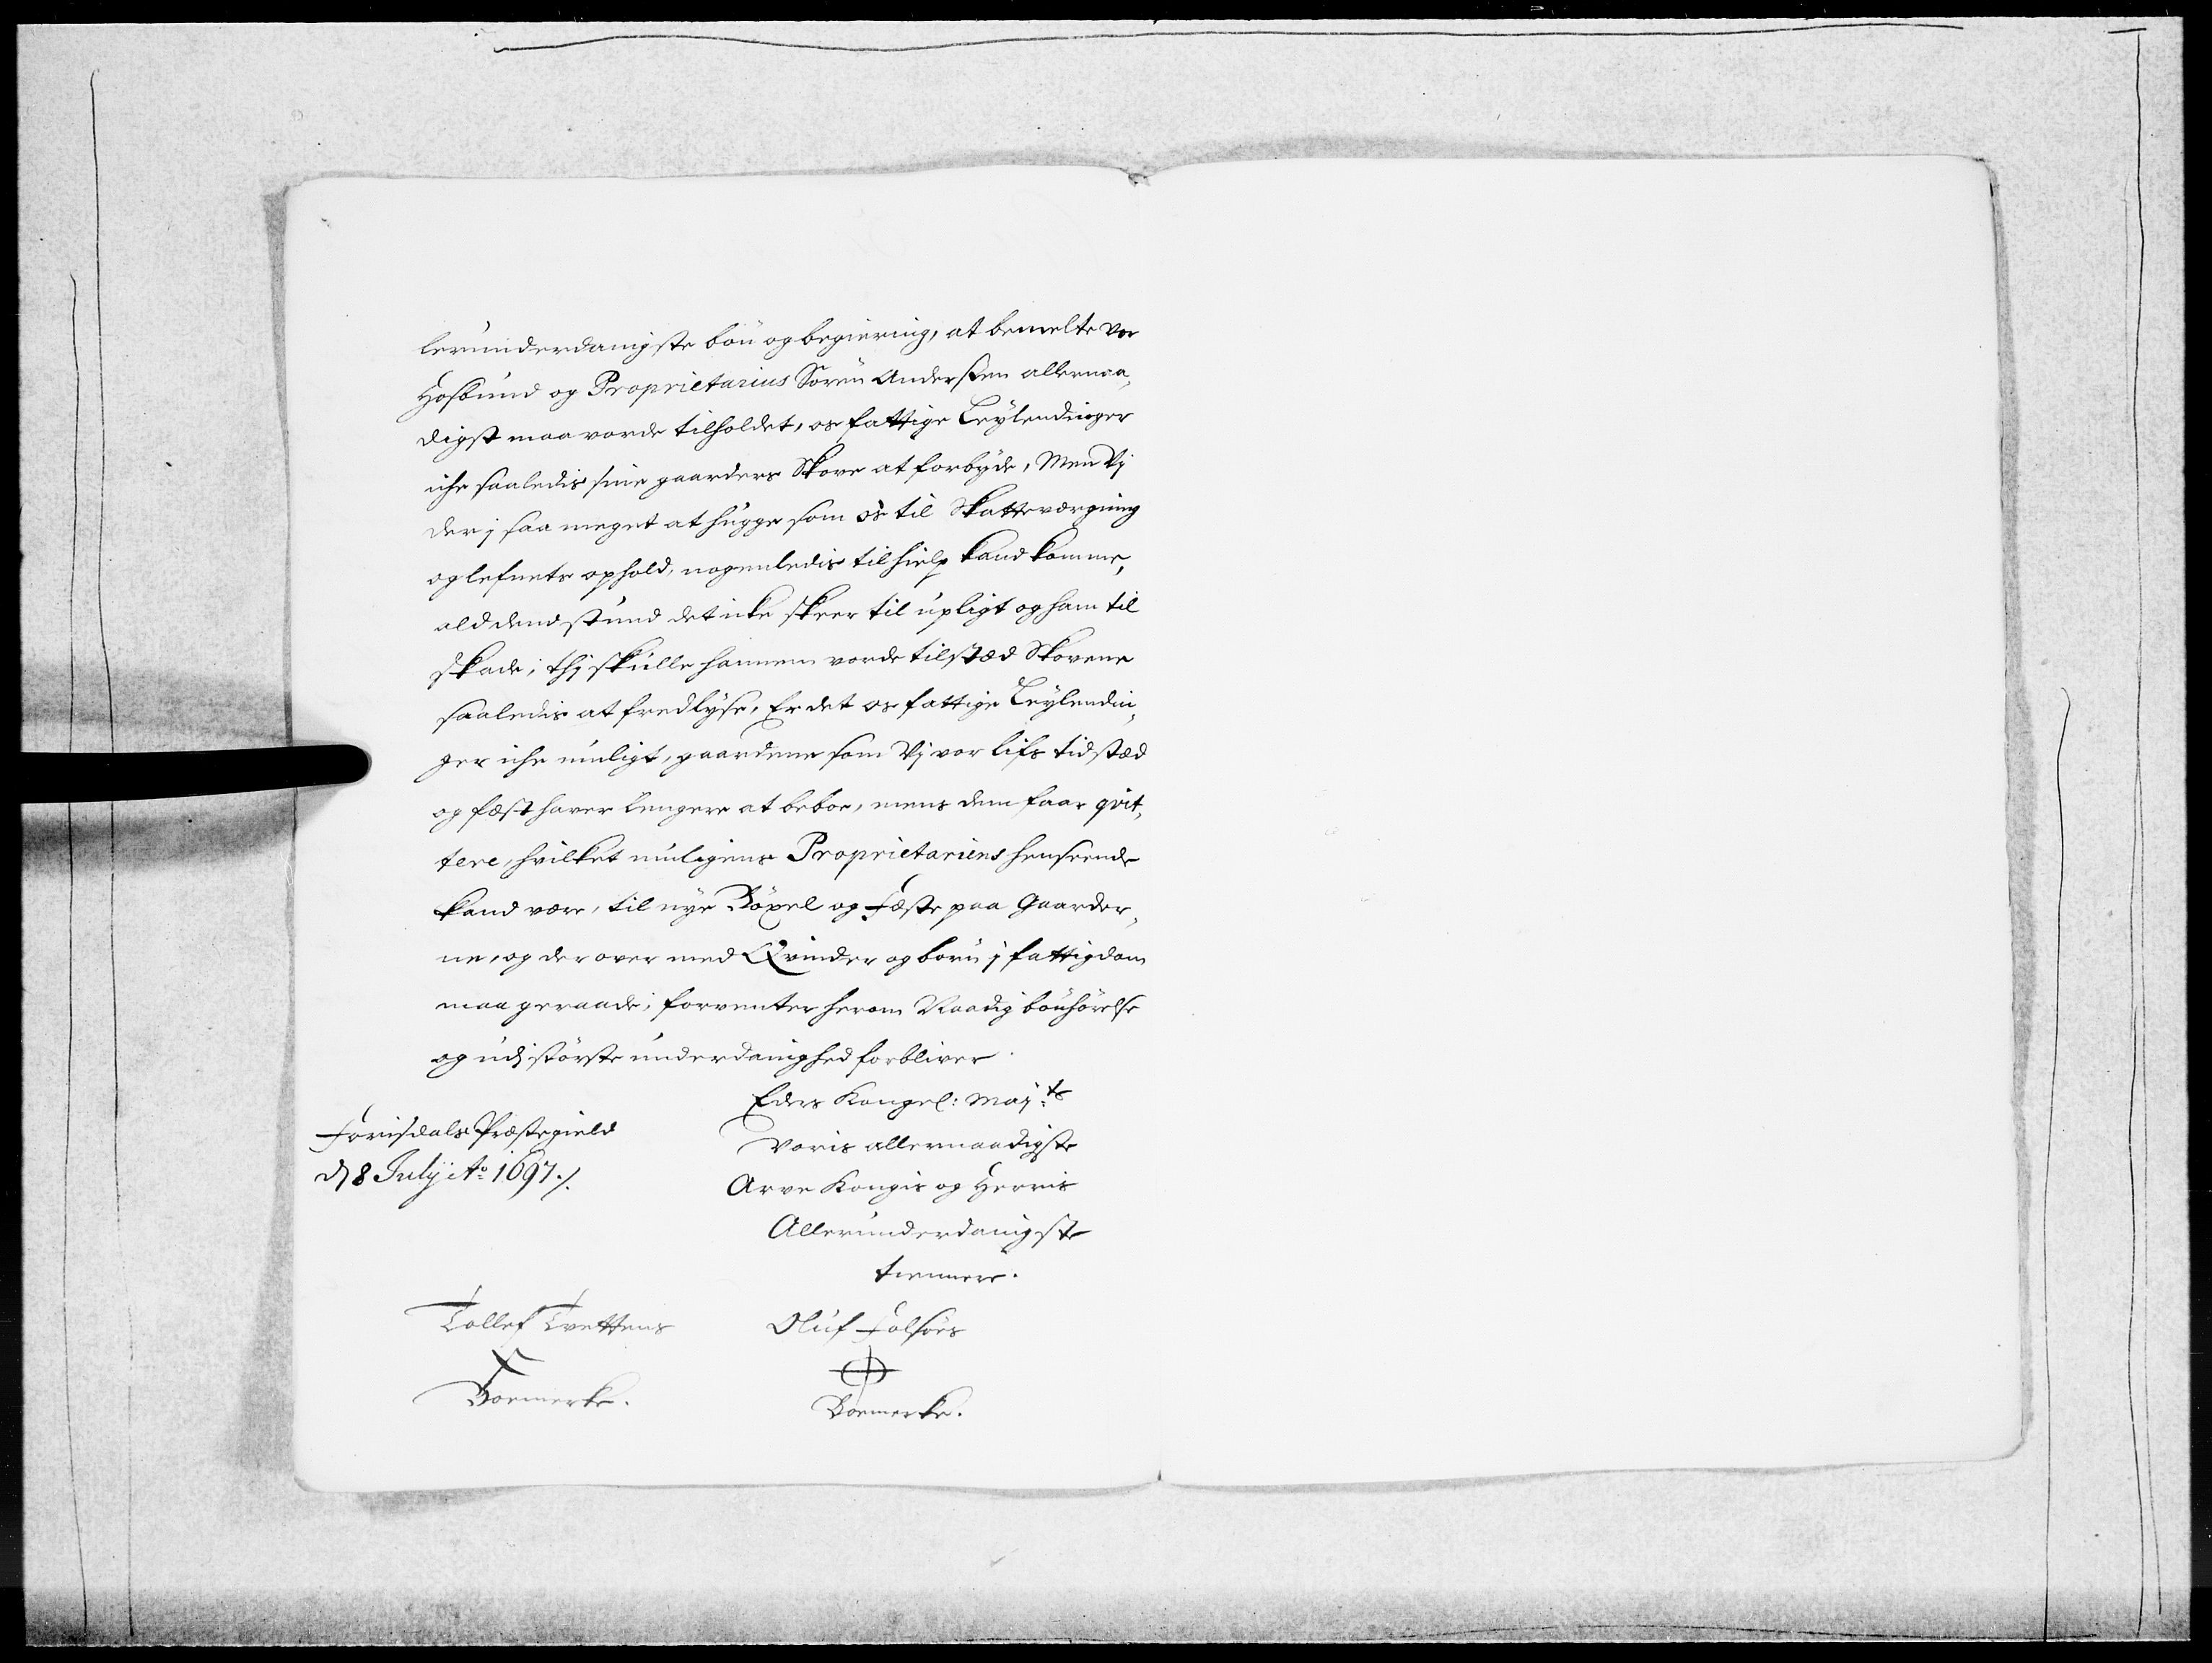 lerunderdanigste bön og begiering, at bemelte vor
Hosbund og Proprietarius Sören Andersen allernaa¬
digst maa vorde tilholdet, os fattige Leylendinger
iche saaledis sine gaarders Skove at forbyde, Men Vj
der j saa meget at hugge som os til Skatteværgning
og lefnets ophold, nogenledis til hielp kand komme,
ald dend stund det icke skeer til upligt og ham til
skade; thj skulle hannem vorde tilsted Skovene
saaledis at fredlyse, Er det os fattige Leylendin¬
ger iche muligt, gaardene som Vj vor lifs tid sted
og fæst haver lengere at beboe, mens dem faar qvit¬
tere, hvilket muligens Proprietariens henseende
kand være, til nye Böxel og Fæste paa Gaarder¬
ne, og derover med Qvinder og börn j fattigdom
maa geraade; forventer herom Naadig bönhörelse
og udj störste underdanighed forbliver.
Eders Kongel: Maj:ts
Voris allernaadigste
Arve Kongis og Herris
Allerunderdanigste
tiennere.
Forisdals Præstegield
d 8 July Ao 1697 ./.
Tollef Tvettens
Oluf Folsöes
Boemerke.
Boemerke.